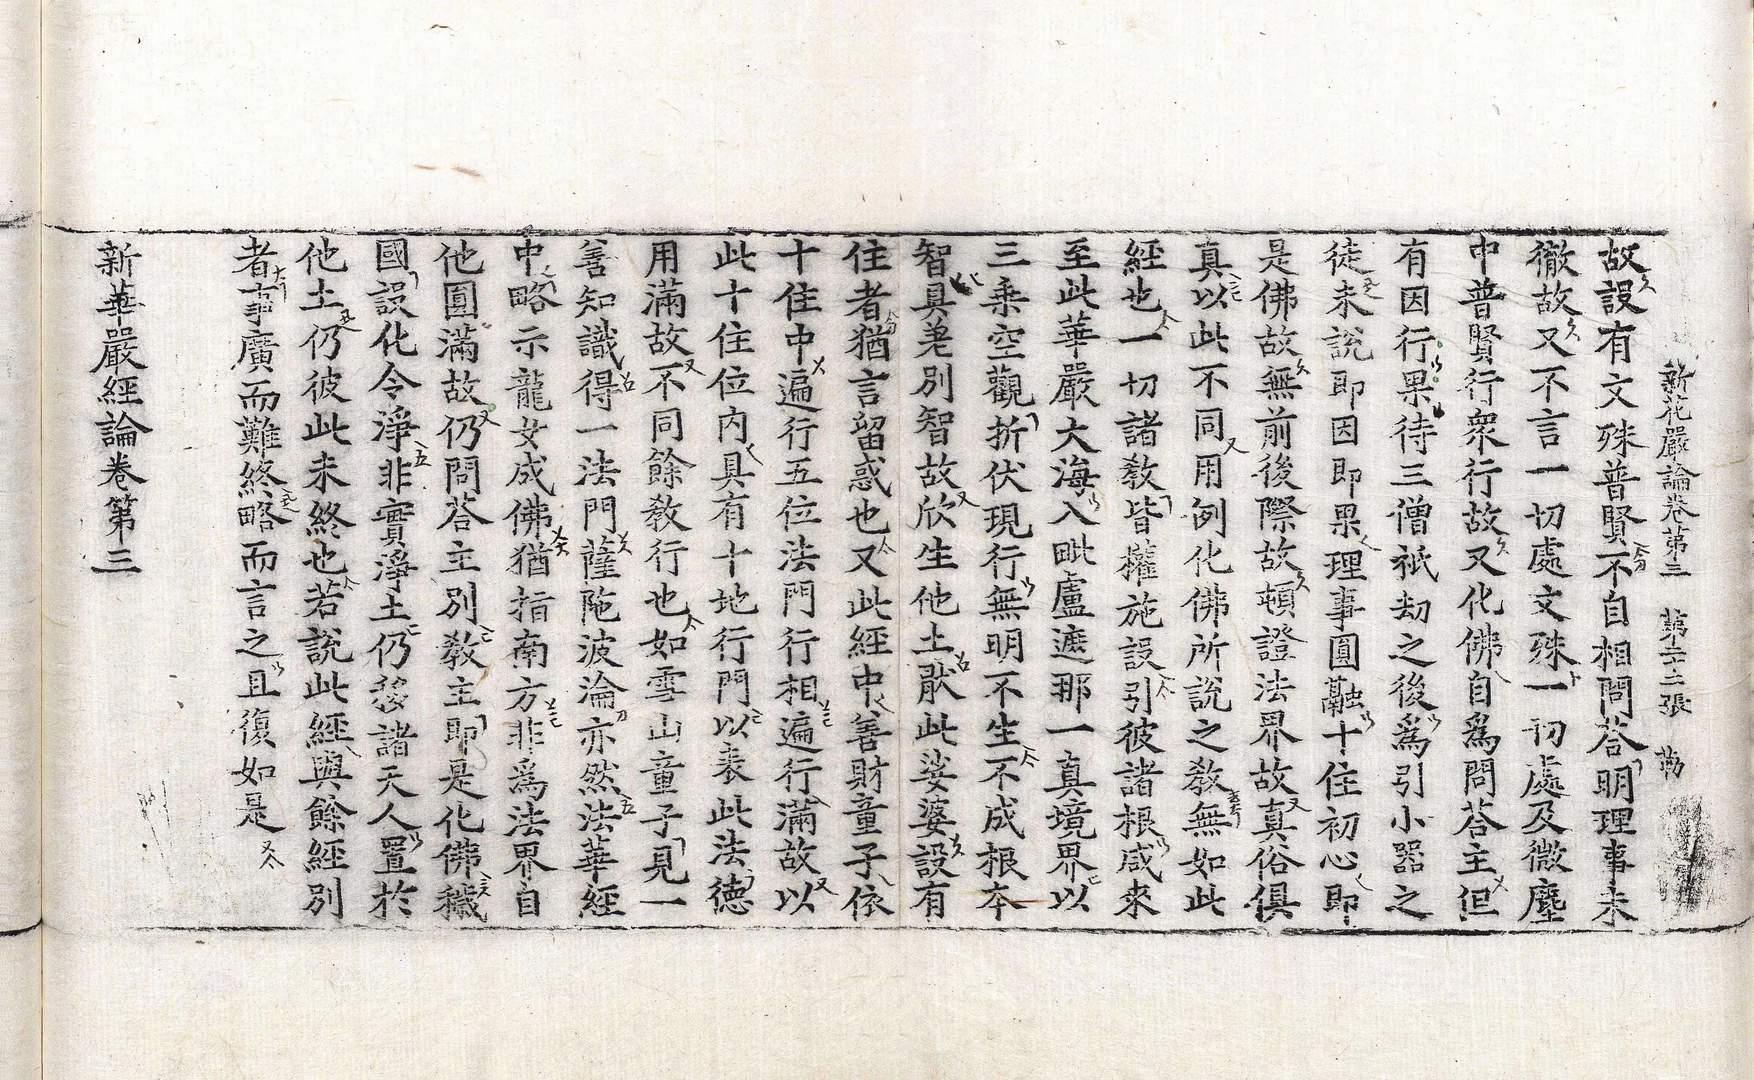 新花嚴論卷第三　第二十三張　勘
故設有文殊普賢不自相問荅明理事未
徹故又不言一切處文殊一切處及微塵
中普賢行衆行故又化佛自爲問荅主但
有因行果待三僧祇劫之後爲引小器之
徒未說即因即果理事圓融十住初心即
是佛故無前後際故頓證法界故真俗俱
真以此不同用例化佛所說之敎無如此
經也一切諸敎皆權施設引彼諸根咸來
至此華嚴大海入毗盧遮那一真境界以
三乘空觀折伏現行無明不生不成根本
智具差別智故欣生他土猒此娑婆設有
住者猶言留惑也又此經中善財童子依
十住中遍行五位法門行相遍行滿故以
此十住位内具有十地行門以表此法德
用滿故不同餘敎行也如雪山童子見一
善知識得一法門薩陁波淪亦然法華經
中略示龍女成佛猶指南方非爲法界自
他圓滿故仍問荅主別敎主即是化佛穢
國設化令淨非實淨土仍移諸天人置於
他土仍彼此未終也若說此經與餘經別
者事廣而難終略而言之且復如是
新華嚴經論卷第三